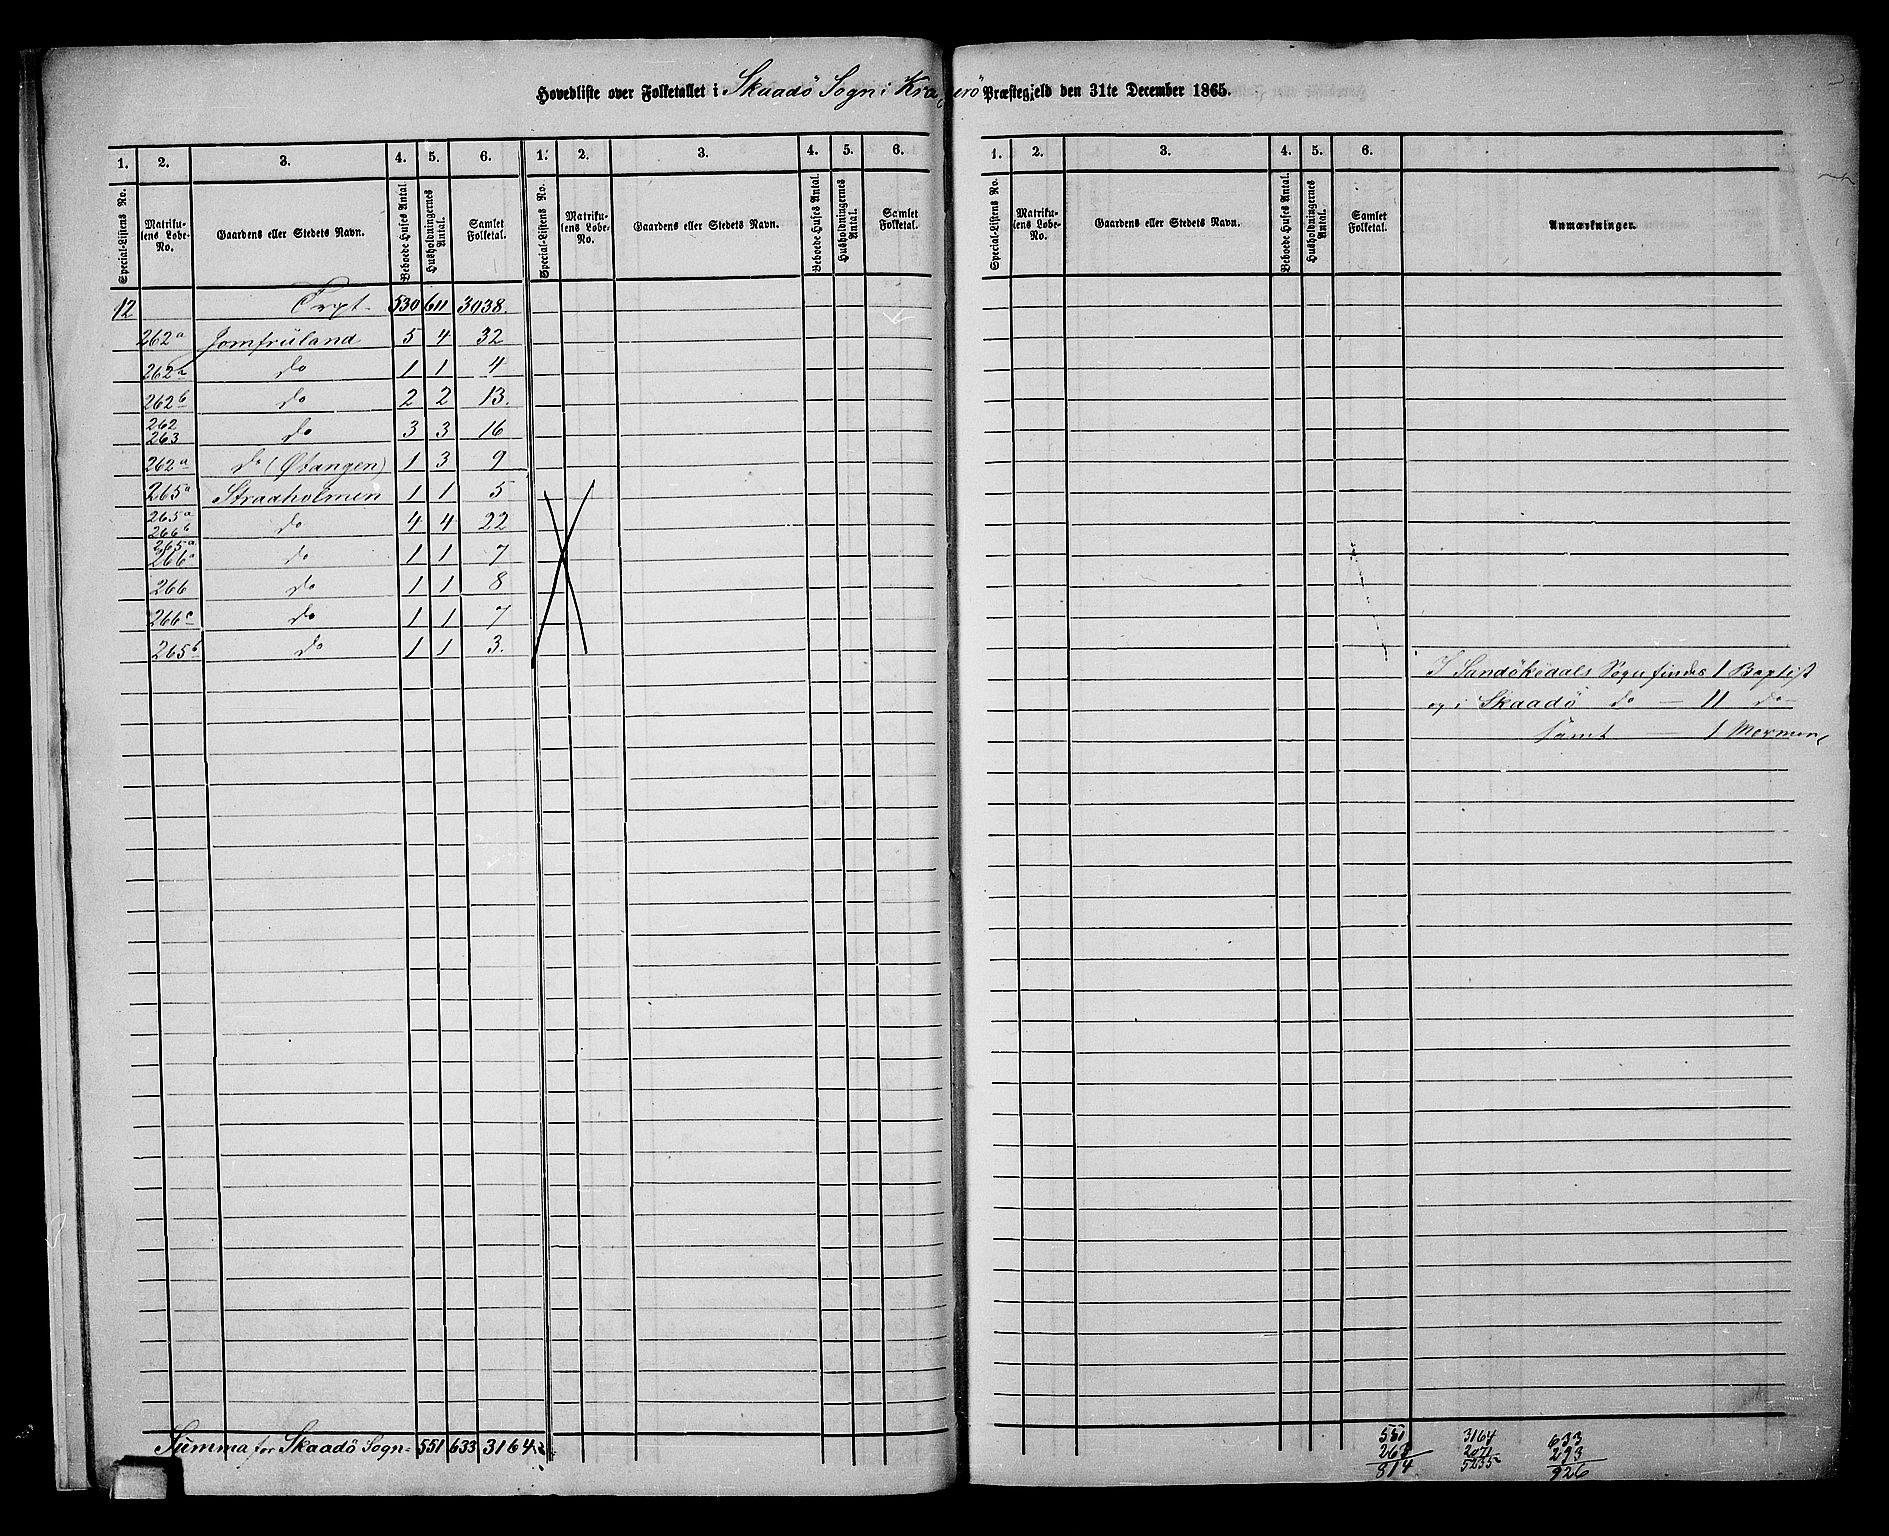 Hovedliste over Folketallet i Skaadö Sogn i Kragerö Præstegjeld den 31te December 1865.
1. 2. 3. 4. 5. 6. 1. 2. 3. 4. 5. 6. 1. 2. 3. 4. 5. 6.
Special-Listens No. Matrikulens Løbe-No. Gaardens eller Stedets Navn. Beboede Huses Antal. Husholdningernes Antal. Samlet Folketal. Special-Listens No. Matrikulens Løbe-No. Gaardens eller Stedets Navn. Beboede Huses Antal. Husholdningernes Antal. Samlet Folketal. Special-Listens No. Matrikulens Løbe-No. Gaardens eller Stedets Navn. Beboede Huses Antal. Husholdningernes Antal. Samlet Folketal. Anmærkninger.
12 Trpt. 530 611 3038.
262a Jomfruland 5 4 32
262a do 1 1 4
262b do 2 2 13.
262 263 do 3 3 16
262a do (Øtangen) 1 3 9
265a Straaholmen 1 1 5
265a 266b do 4 4 22
265a 266a do 1 1 7
266 do 1 1 8
266c do 1 1 7
265b do 1 1 3.
I Sandökedals Sogn findes 1 Baptist
og i Skaadö do — 11 do
samt — 1 Mormon,
Summa for Skaadö Sogn = 551 633 3164
551 3164 633
263 2071 293
814 5235 926